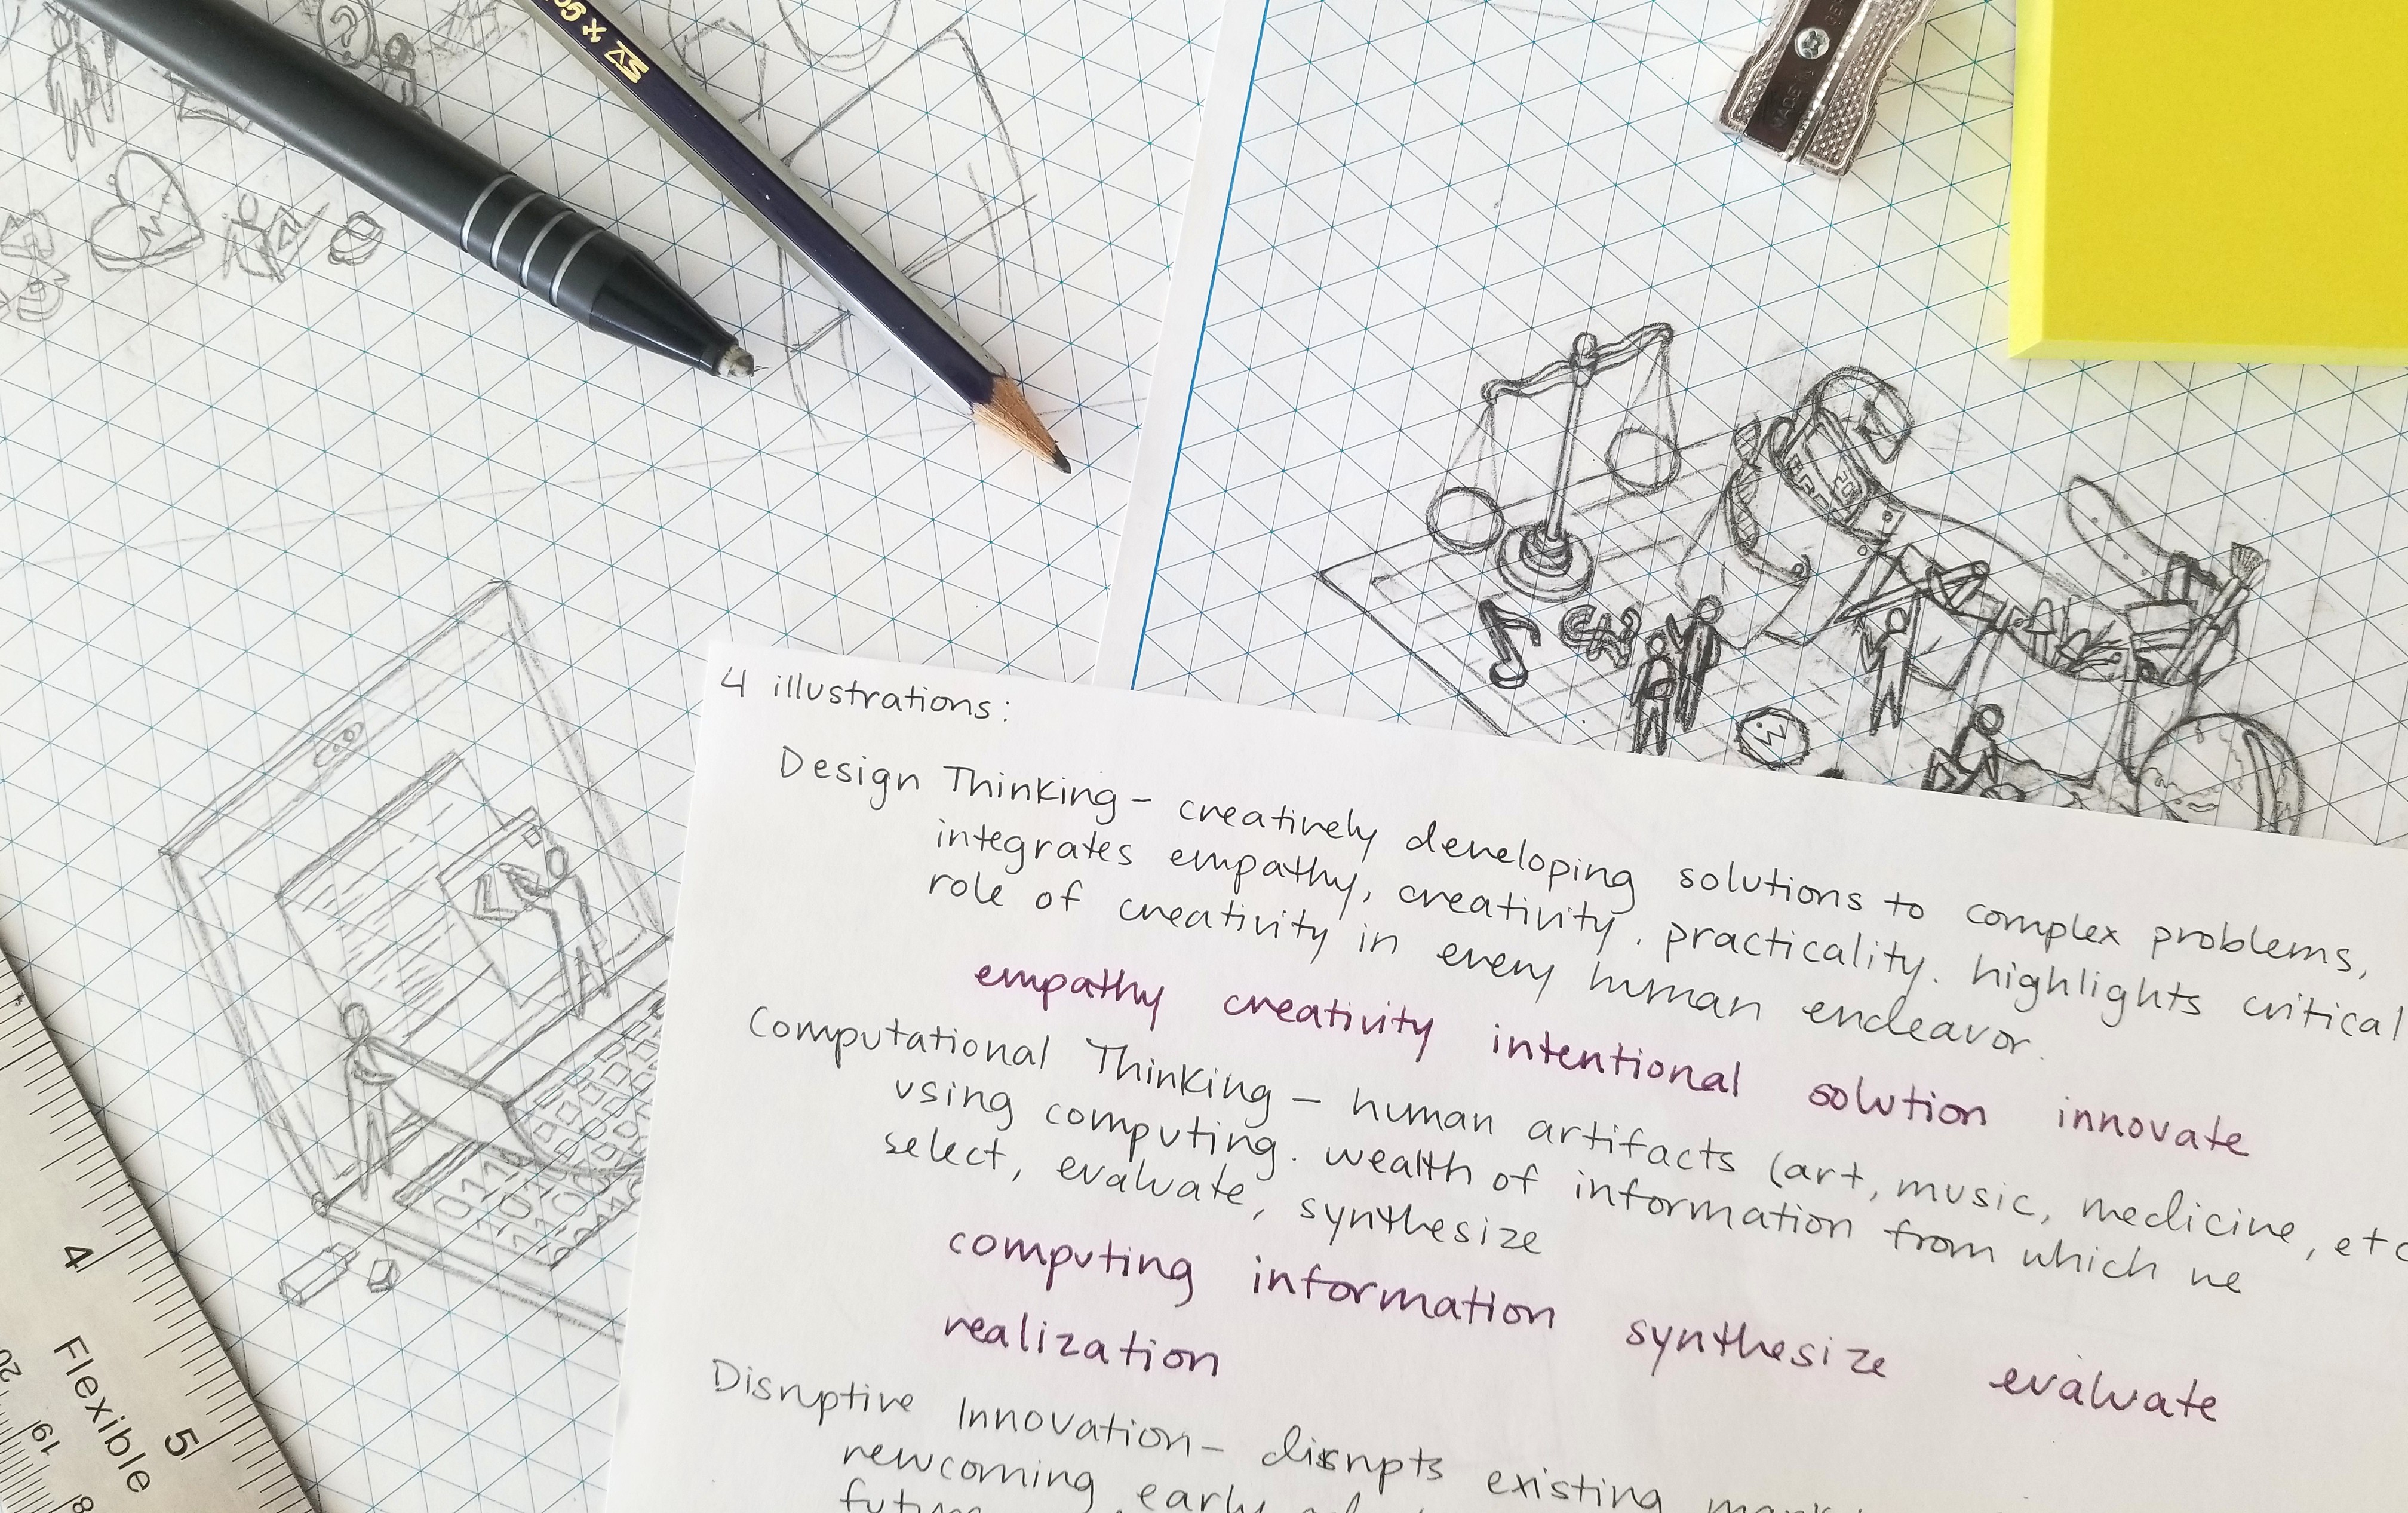 4 illustrations:
Design Thinking – creatively developing solutions to complex problems,
integrates empathy, creativity, practicality. highlights critical
role of creativity in every human endeavor.
empathy creativity intentional solution innovate
Computational Thinking – human artifacts (art, music, medicine, etc
using computing. wealth of information from which we
select, evaluate, synthesize
computing information synthesize evaluate
realization
Disruptive Innovation – disrupts existing
newcoming early
4
5
Flexible
20
19
8
MADE